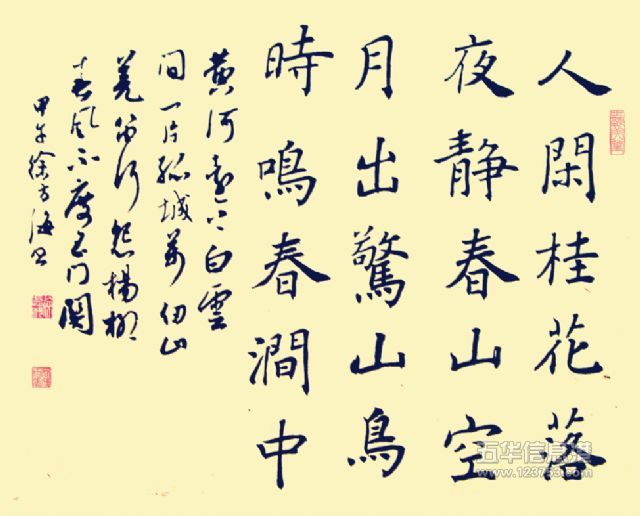 人閑桂花落
夜静春山空
月出驚山鳥
時鳴春澗中
黄河遠上白雲
间一片孤城萬仞山
羌笛何须怨楊柳
春風不度玉门關
甲午徐方海书
五华信息港
www.123753.com